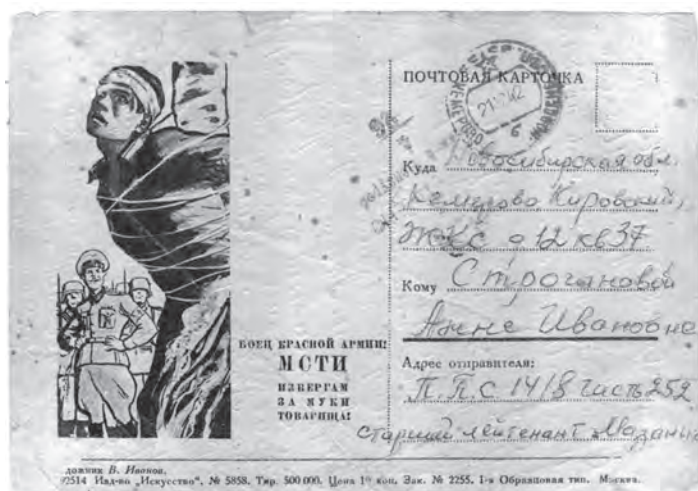 ПОЧТОВАЯ КАРТОЧКА
Куда Новосибирская обл.
Кемерово, Кировский,
12 кв 37
Кому Строгановой
Анне Ивановне
Адрес отправителя:
П.П.С 1418 часть 252
старший лейтенант
БОЕЦ КРАСНОЙ АРМИИ!
МСТИ
ИЗВЕРГАМ
ЗА МУКИ
ТОВАРИЩА!
КЕМЕРОВО
6
В. Иванов.
2514 Изд-во „Искусство“. № 5858. Тир. 500 000. Цена 10 коп. Зак. № 2255. 1-я Образцовая тип. Москва.